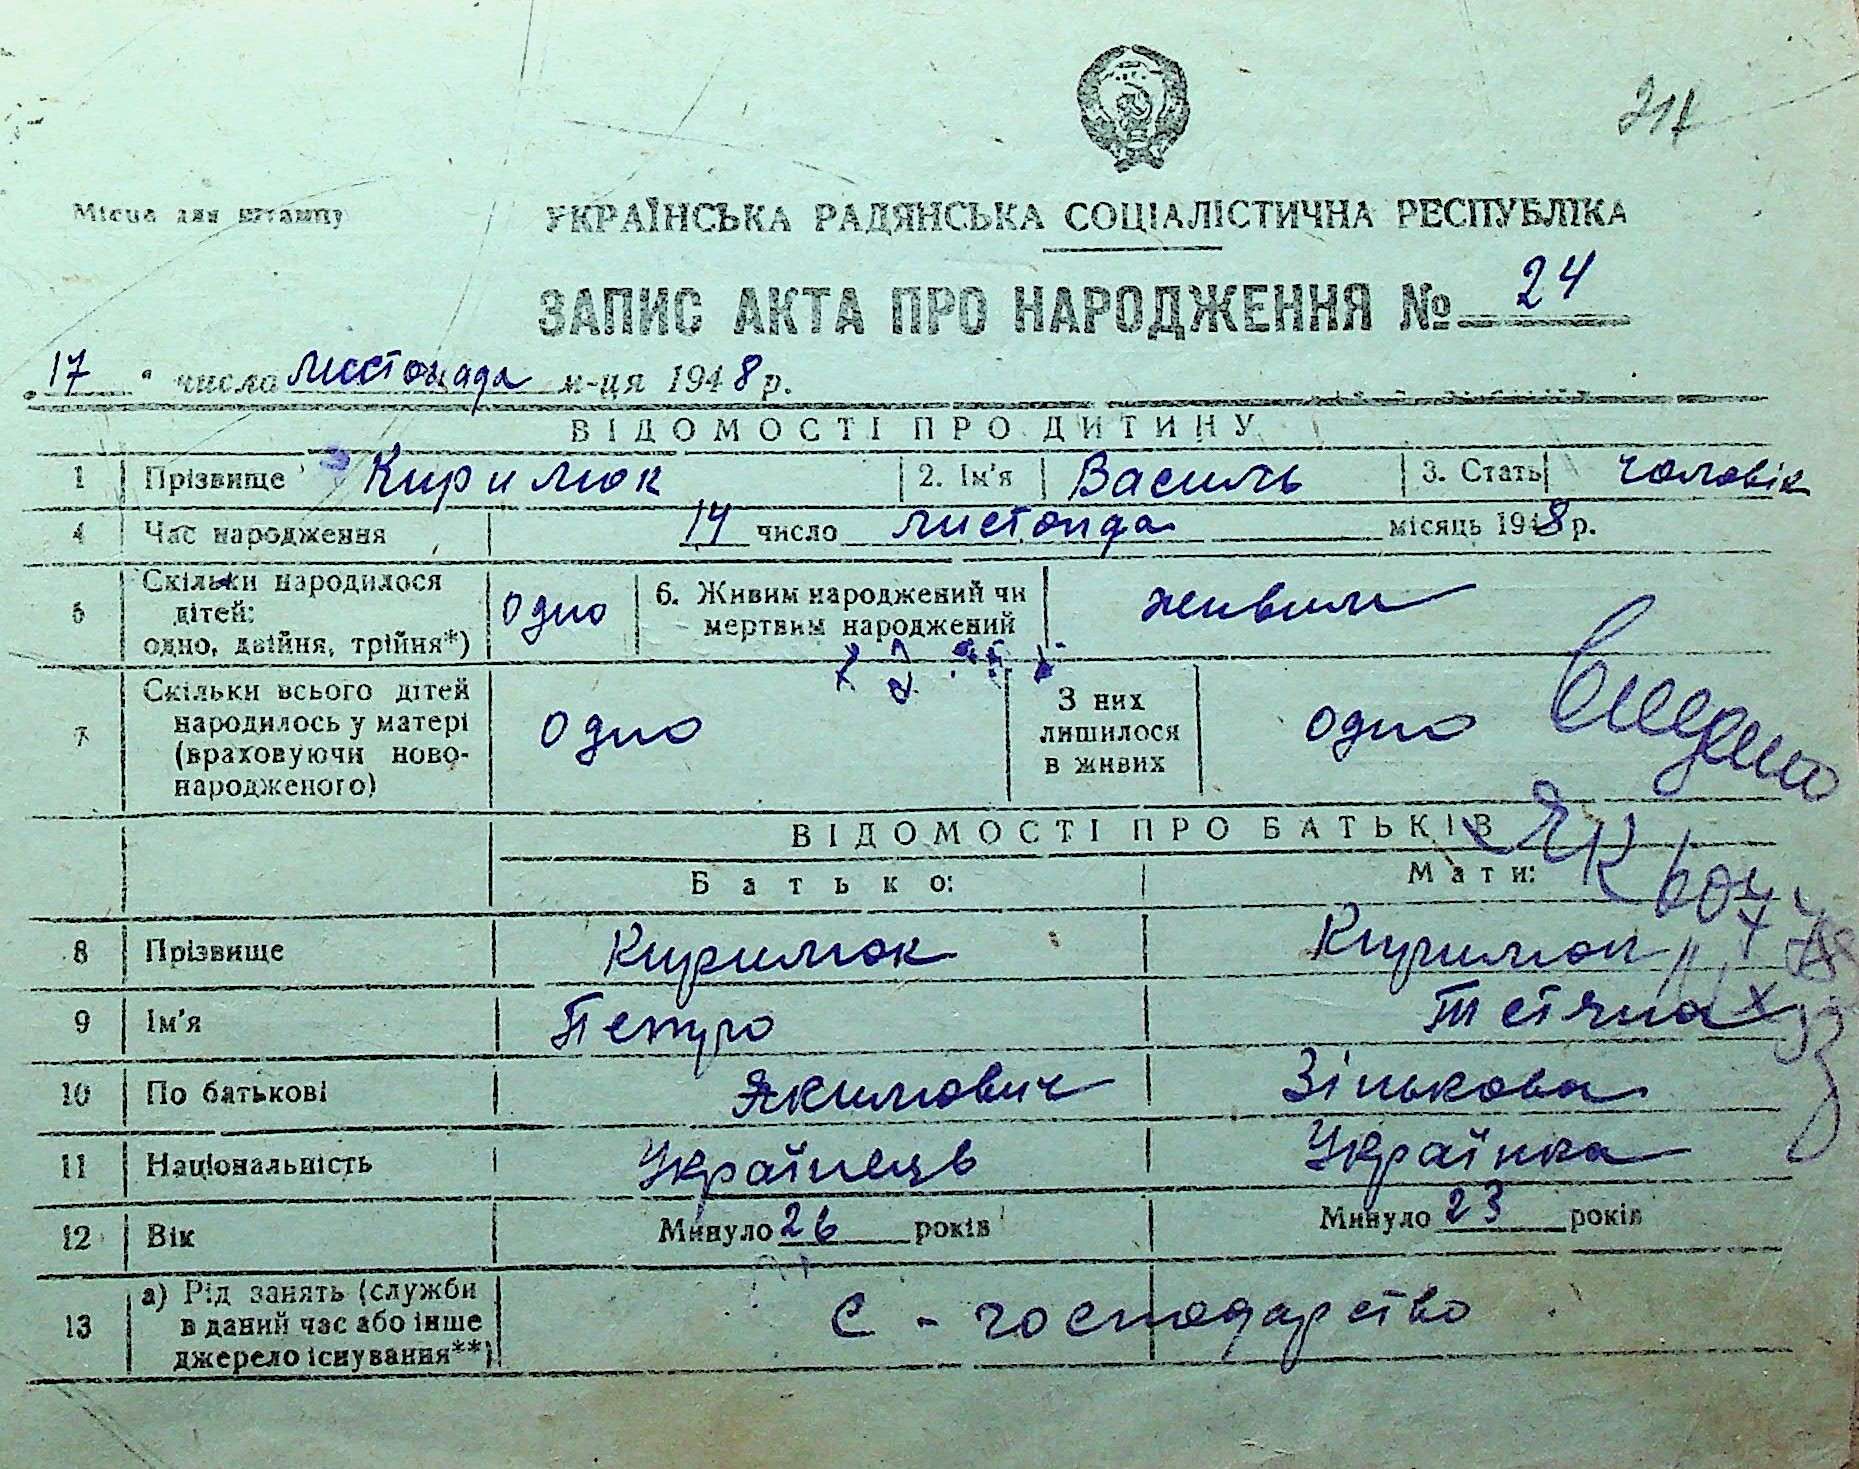 317
Місце для штампу
УКРАЇНСЬКА РАДЯНСЬКА СОЦІАЛІСТИЧНА РЕСПУБЛІКА
ЗАПИС АКТА ПРО НАРОДЖЕННЯ № 24
„17“ числа листопада м-ця 1948 р.
ВІДОМОСТІ ПРО ДИТИНУ
1 Прізвище Кирилюк 2. Ім'я Василь 3. Стать чоловік
4 Час народження 14 число листопда місяць 1948 р.
5 Скільки народилося дітей: одно, двійня, трійня*) одно 6. Живим народжений чи мертвим народжений живим
7 Скільки всього дітей народилось у матері (враховуючи новонародженого) одно З них лишилося в живих одно
ВІДОМОСТІ ПРО БАТЬКІВ
Батько: Мати:
8 Прізвище Кирилюк Кирилюк
9 Ім'я Петро Тетяна
10 По батькові Якимович Зінькова
11 Національність Українець Українка
12 Вік Минуло 26 років Минуло 23 років
13 а) Рід занять (служби в даний час або інше джерело існування**) С-господарство